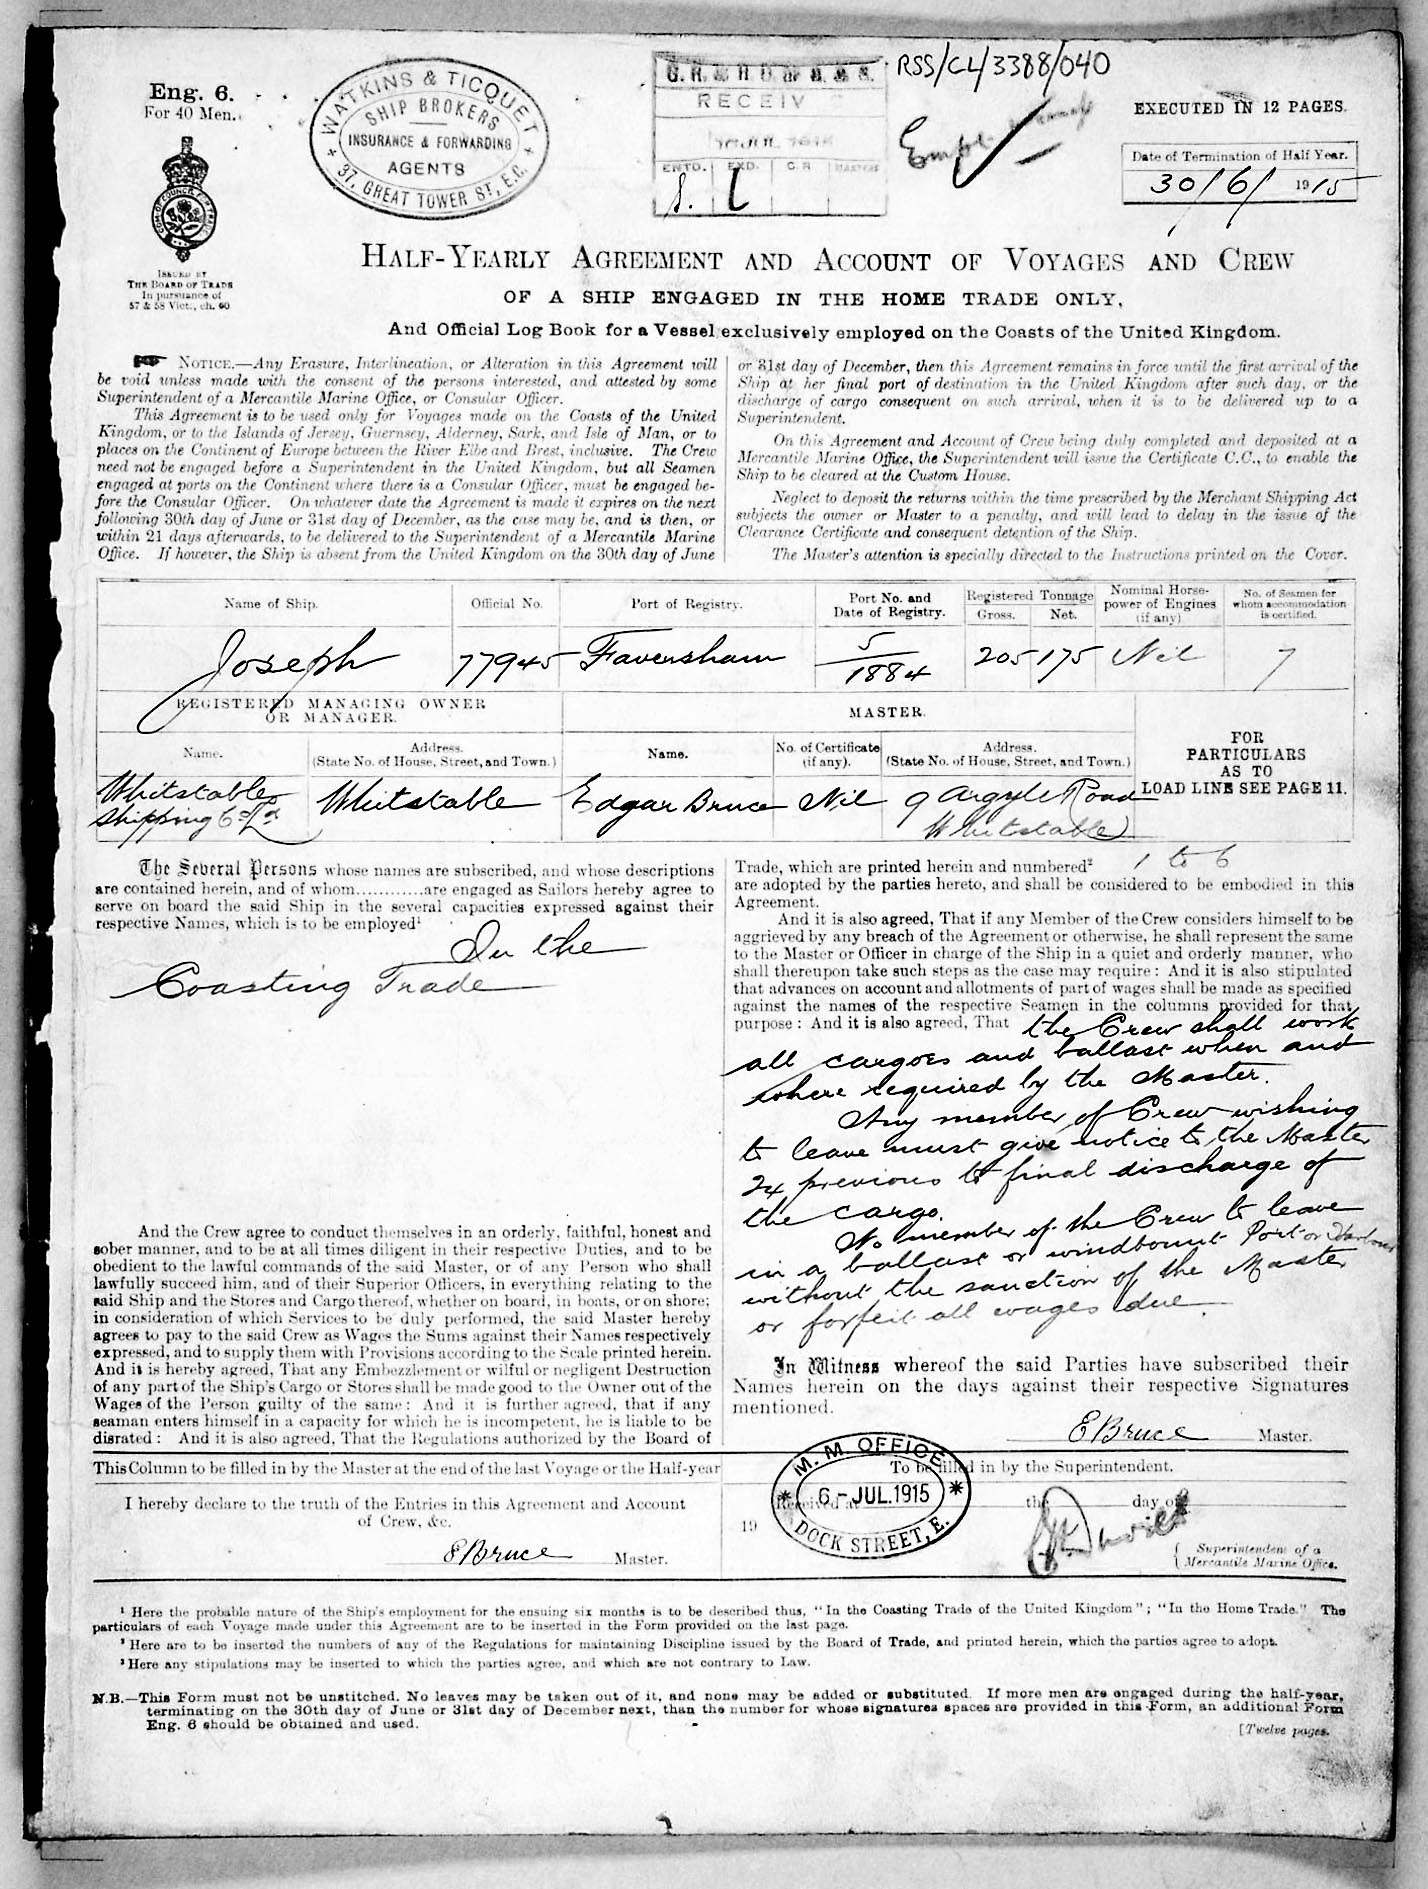 Eng. 6.
For 40 Men.
WATKINS & TICQUET
SHIP BROKERS
INSURANCE & FORWARDING
AGENTS
37, GREAT TOWER ST, E.C.
RECEIV
ENTD. EXD. C.R MASTERS
RSS/CL/3388/040
EXECUTED IN 12 PAGES.
Date of Termination of Half Year.
30/6/ 1915
ISSUED BY
THE BOARD OF TRADE
In pursuance of
57 & 58 Vict., ch. 60
HALF-YEARLY AGREEMENT AND ACCOUNT OF VOYAGES AND CREW
OF A SHIP ENGAGED IN THE HOME TRADE ONLY,
And Official Log Book for a Vessel exclusively employed on the Coasts of the United Kingdom.
NOTICE.—Any Erasure, Interlineation, or Alteration in this Agreement will
be void unless made with the consent of the persons interested, and attested by some
Superintendent of a Mercantile Marine Office, or Consular Officer.
This Agreement is to be used only for Voyages made on the Coasts of the United
Kingdom, or to the Islands of Jersey, Guernsey, Alderney, Sark, and Isle of Man, or to
places on the Continent of Europe between the River Elbe and Brest, inclusive. The Crew
need not be engaged before a Superintendent in the United Kingdom, but all Seamen
engaged at ports on the Continent where there is a Consular Officer, must be engaged be-
fore the Consular Officer. On whatever date the Agreement is made it expires on the next
following 30th day of June or 31st day of December, as the case may be, and is then, or
within 21 days afterwards, to be delivered to the Superintendent of a Mercantile Marine
Office. If however, the Ship is absent from the United Kingdom on the 30th day of June
or 31st day of December, then this Agreement remains in force until the first arrival of the
Ship at her final port of destination in the United Kingdom after such day, or the
discharge of cargo consequent on such arrival, when it is to be delivered up to a
Superintendent.
On this Agreement and Account of Crew being duly completed and deposited at a
Mercantile Marine Office, the Superintendent will issue the Certificate C.C., to enable the
Ship to be cleared at the Custom House.
Neglect to deposit the returns within the time prescribed by the Merchant Shipping Act
subjects the owner or Master to a penalty, and will lead to delay in the issue of the
Clearance Certificate and consequent detention of the Ship.
The Master's attention is specially directed to the Instructions printed on the Cover.
Name of Ship. Official No. Port of Registry. Port No. and Date of Registry. Registered Tonnage Gross. Net. Nominal Horse-power of Engines (if any) No. of Seamen for whom accommodation is certified.
Joseph 77945 Faversham 5/1884 205 175 Nil 7
REGISTERED MANAGING OWNER
OR MANAGER.
MASTER.
Name. Address. (State No. of House, Street, and Town.) Name. No. of Certificate (if any). Address. (State No. of House, Street, and Town.)
FOR
PARTICULARS
AS TO
LOAD LINE SEE PAGE 11.
Whitstable Whitstable Edgar Bruce Nil 9 Argyle Road
Shipping Co Ld Whitstable
The Several Persons whose names are subscribed, and whose descriptions
are contained herein, and of whom............are engaged as Sailors hereby agree to
serve on board the said Ship in the several capacities expressed against their
respective Names, which is to be employed¹
In the
Coasting Trade
And the Crew agree to conduct themselves in an orderly, faithful, honest and
sober manner, and to be at all times diligent in their respective Duties, and to be
obedient to the lawful commands of the said Master, or of any Person who shall
lawfully succeed him, and of their Superior Officers, in everything relating to the
said Ship and the Stores and Cargo thereof, whether on board, in boats, or on shore;
in consideration of which Services to be duly performed, the said Master hereby
agrees to pay to the said Crew as Wages the Sums against their Names respectively
expressed, and to supply them with Provisions according to the Scale printed herein.
And it is hereby agreed, That any Embezzlement or wilful or negligent Destruction
of any part of the Ship's Cargo or Stores shall be made good to the Owner out of the
Wages of the Person guilty of the same: And it is further agreed, that if any
seaman enters himself in a capacity for which he is incompetent, he is liable to be
disrated: And it is also agreed, That the Regulations authorized by the Board of
Trade, which are printed herein and numbered² 1 to 6
are adopted by the parties hereto, and shall be considered to be embodied in this
Agreement.
And it is also agreed, That if any Member of the Crew considers himself to be
aggrieved by any breach of the Agreement or otherwise, he shall represent the same
to the Master or Officer in charge of the Ship in a quiet and orderly manner, who
shall thereupon take such steps as the case may require: And it is also stipulated
that advances on account and allotments of part of wages shall be made as specified
against the names of the respective Seamen in the columns provided for that
purpose: And it is also agreed, That the Crew shall work
all cargoes and ballast when and
where required by the Master.
Any member of Crew wishing
to leave must give notice to the Master
24 previous to final discharge of
the cargo.
No member of the Crew to leave
in a ballast or windbount Port or Harbour
without the sanction of the Master
or forfeit all wages due.
In Witness whereof the said Parties have subscribed their
Names herein on the days against their respective Signatures
mentioned.
E Bruce Master.
This Column to be filled in by the Master at the end of the last Voyage or the Half-year
I hereby declare to the truth of the Entries in this Agreement and Account
of Crew, &c.
E Bruce Master.
To be filled in by the Superintendent.
Received at the day of
19
M. M. OFFICE
6 - JUL. 1915
DOCK STREET, E.
Superintendent of a
Mercantile Marine Office.
¹ Here the probable nature of the Ship's employment for the ensuing six months is to be described thus, "In the Coasting Trade of the United Kingdom"; "In the Home Trade." The
particulars of each Voyage made under this Agreement are to be inserted in the Form provided on the last page.
² Here are to be inserted the numbers of any of the Regulations for maintaining Discipline issued by the Board of Trade, and printed herein, which the parties agree to adopt.
³ Here any stipulations may be inserted to which the parties agree, and which are not contrary to Law.
N.B.—This Form must not be unstitched. No leaves may be taken out of it, and none may be added or substituted. If more men are engaged during the half-year,
terminating on the 30th day of June or 31st day of December next, than the number for whose signatures spaces are provided in this Form, an additional Form
Eng. 6 should be obtained and used.
[Twelve pages.